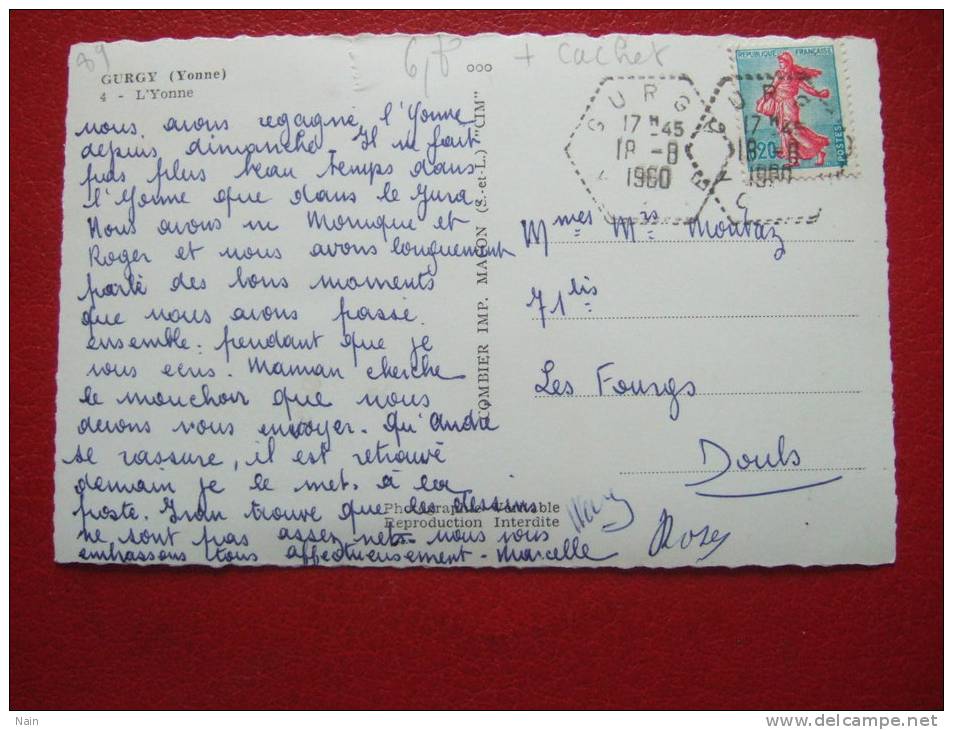 89
6,8
+ cachet
GURGY (Yonne)
4 - L'Yonne
000
nous avons regagné l'Yonne
depuis dimanche. Il ne fait
pas plus beau temps dans
l'Yonne que dans le Jura.
Nous avons vu Monique et
Roger et nous avons longuement
parlé des bons moments
que nous avons passé
ensemble. pendant que je
vous écris. Maman cherche
le mouchoir que nous
devons vous envoyer. Qu'André
se rassure, il est retrouvé
demain je le met à la
poste. Jean trouve que les dessins
ne sont pas assez nets. nous vous
embrassons tous affectueusement - Marcelle
COMBIER IMP. MACON (S.-et-L.) "CIM"
Photographie Véritable
Reproduction Interdite
GURGY
17 H -45
18 -8
1960
GURGY
17 H 45
18 -8
1960
REPUBLIQUE FRANÇAISE
0,20
POSTES
Mmes Mrs Moutaz
71 bis
Les Fourgs
Doubs
Rosey
Nain
www.delcampe.net